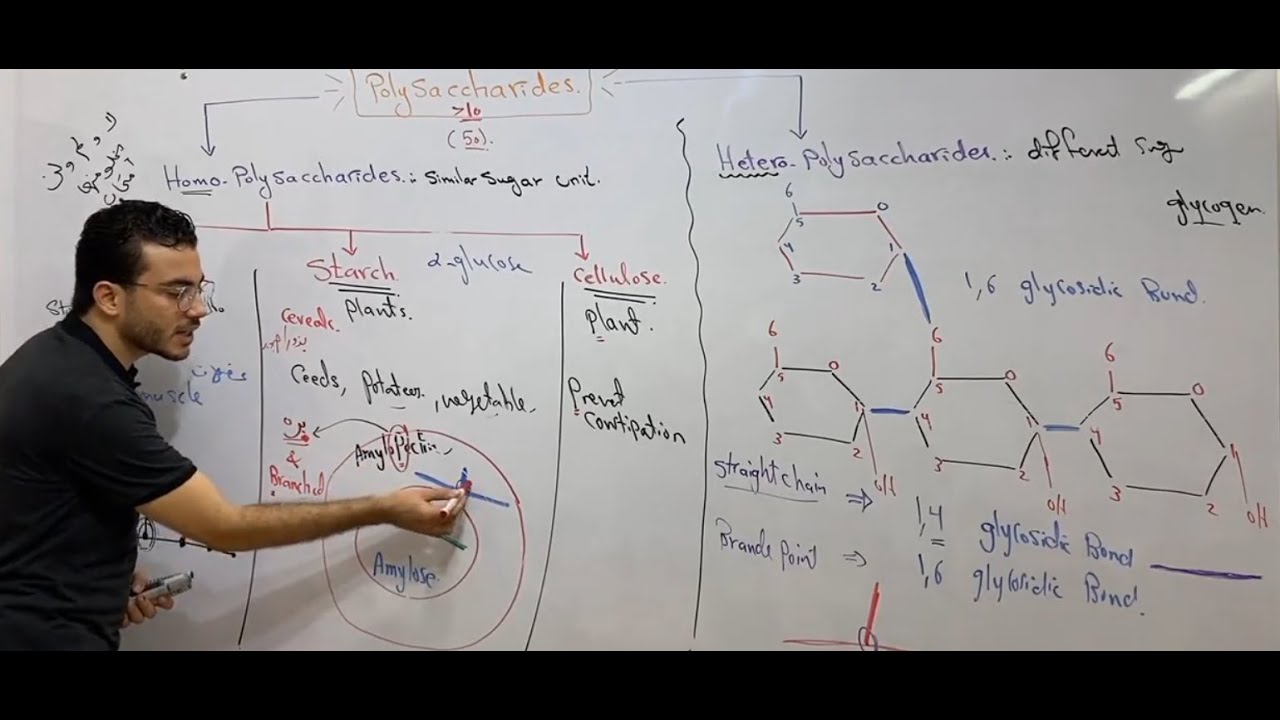 PolySaccharides.
>10
(50).
Homo-PolySaccharides.: Similar Sugar unit.
Starch.
α-glucose
Plants.
Cereals.
Ceeds, Potatoes, vegetable.
بره
&
Branched
AmyloPectin,
Amylose.
muscle
Cellulose.
Plant.
Prevet
Constipation
Hetero-PolySaccharides.: different Sug
glycogen.
6
5
O
4
1
3
2
1,6 glycosidic Bond.
6
5
O
4
1
3
2
OH
6
5
O
4
1
3
2
OH
6
5
O
4
1
3
2
OH
Straight chain ⇒ 1,4 glycosidic Bond
Branch Point ⇒ 1,6 glycosidic Bond.